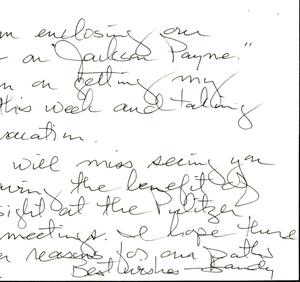 enclosing our
on "Jackson Payne."
on getting my
this week and taking
vacation.
will miss seeing you
the benefit of
sight at the Pulitzer
meetings. I hope there
reasons for our paths
Best wishes - Sandy